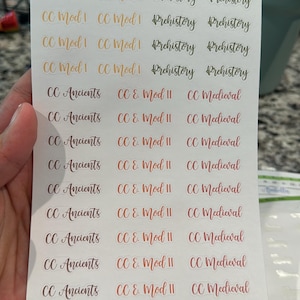 Prehistory
CC Mod I CC Mod I Prehistory Prehistory
CC Mod I CC Mod I Prehistory Prehistory
CC Mod I CC Mod I Prehistory Prehistory
CC Ancients CC & Mod II CC Medieval
CC Ancients CC & Mod II CC Medieval
CC Ancients CC & Mod II CC Medieval
CC Ancients CC & Mod II CC Medieval
CC Ancients CC & Mod II CC Medieval
CC Ancients CC & Mod II CC Medieval
CC Ancients CC & Mod II CC Medieval
CC Ancients CC & Mod II CC Medieval
CC Ancients CC & Mod II CC Medieval